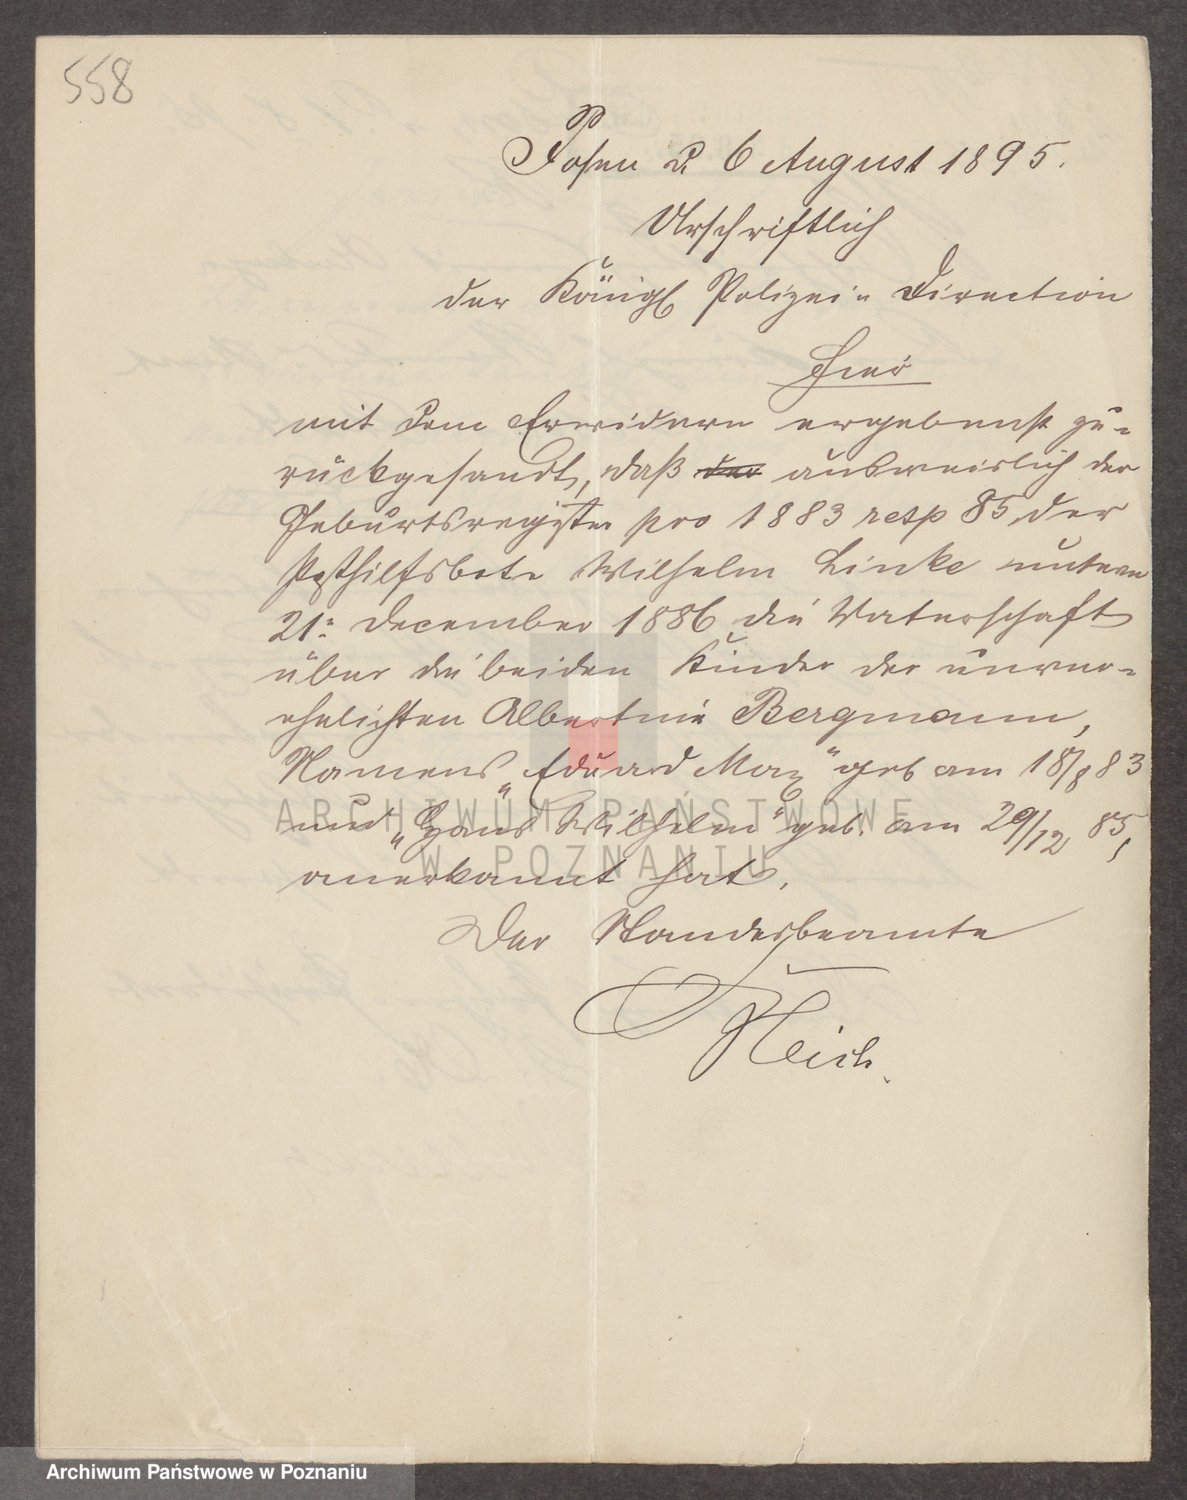 558
Posen d. 6 August 1895.
Urschriftlich
der Königl Polizei= Direction
Hier
mit dem Erwidern ergebenst zu=
rückgesandt, daß der ausweislich der
Geburtsregister pro 1883 resp 85 der
Posthilfsbote Wilhelm Linke unterm
21= December 1886 die Vaterschaft
über die beiden Kinder der unver=
ehelichten Albertine Bergmann,
Namens „Eduard Max" geb am 18/8 83
und „Hans Wilhelm" geb. am 29/12 85,
anerkannt hat.
Der Standesbeamte
ARCHIWUM PAŃSTWOWE
W POZNANIU
Archiwum Państwowe w Poznaniu